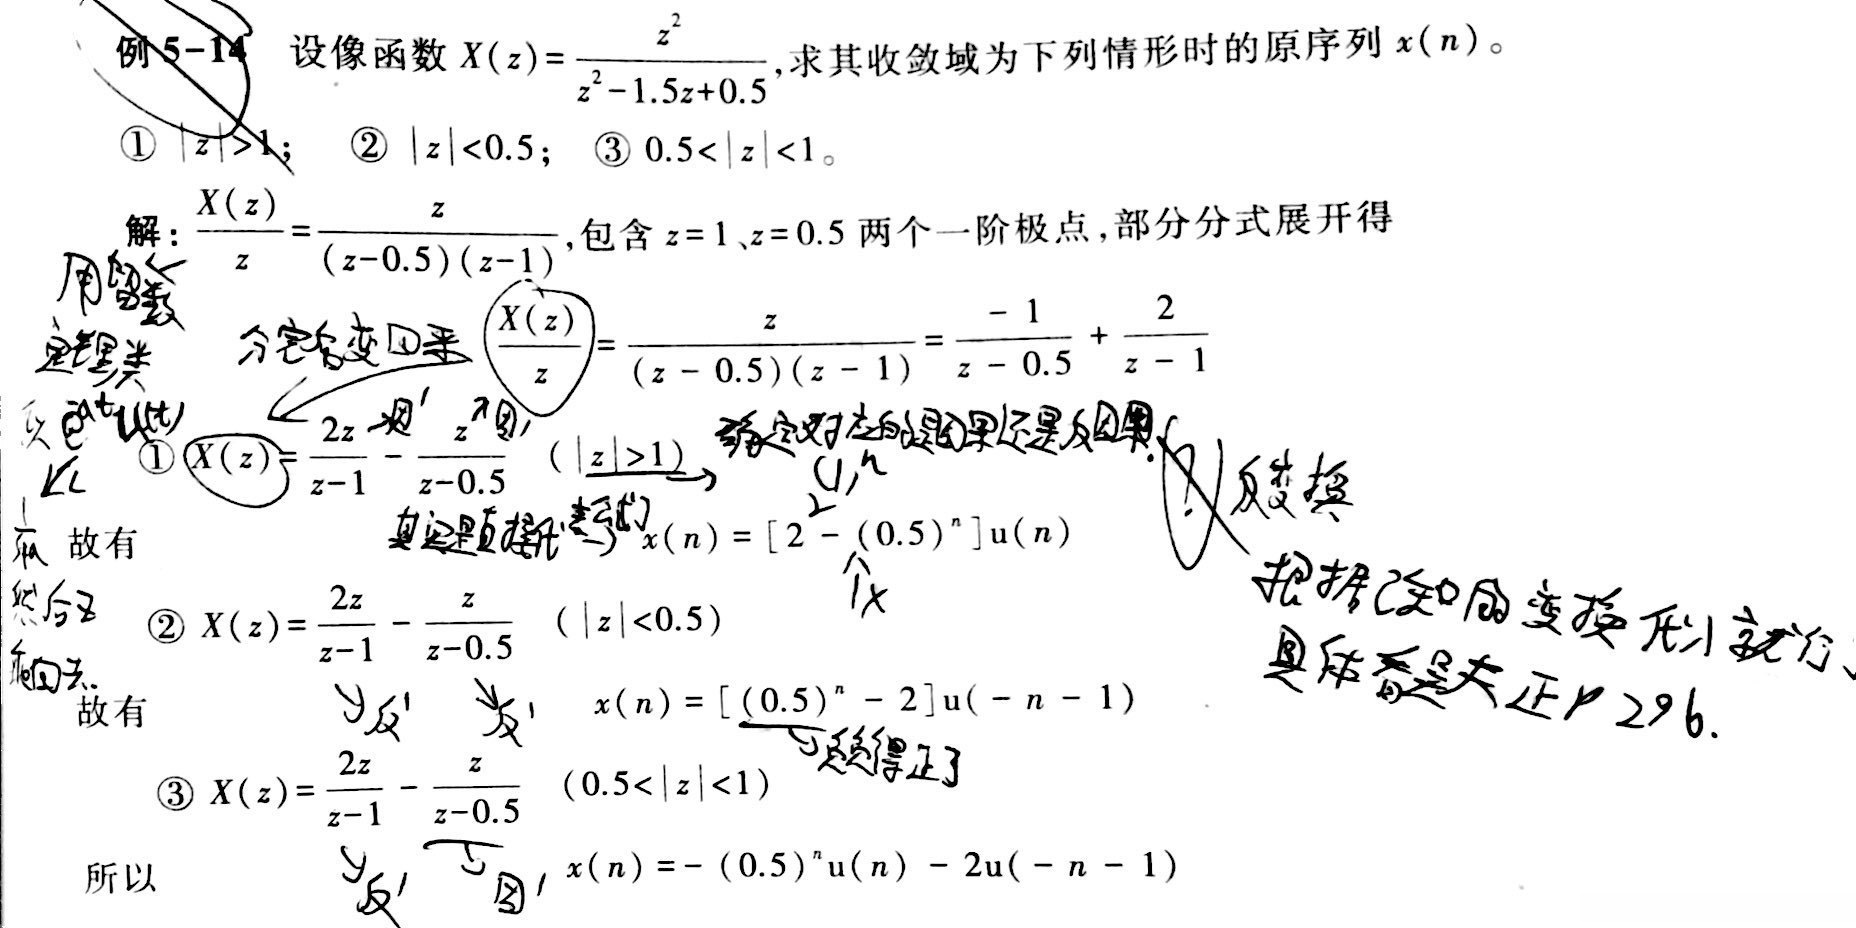 例 5-14 设像函数 X(z)=z²/(z²-1.5z+0.5),求其收敛域为下列情形时的原序列 x(n)。
① |z|>1; ② |z|<0.5; ③ 0.5<|z|<1。
解: X(z)/z=z/((z-0.5)(z-1)),包含 z=1、z=0.5 两个一阶极点,部分分式展开得
用留数
定理类
分完再变回来 X(z)/z = z/((z - 0.5)(z - 1)) = - 1/(z - 0.5) + 2/(z - 1)
① X(z)=2z/(z-1) - z/(z-0.5) (|z|>1) 确定对应的是因果还是反因果. 反变换
故有 x(n) = [2 - (0.5)ⁿ]u(n)
根据已知的变换形式就行
② X(z)=2z/(z-1) - z/(z-0.5) (|z|<0.5)
具体看吴大正P296.
故有 反' 反' x(n) = [(0.5)ⁿ - 2]u(- n - 1)
负负得正了
③ X(z)=2z/(z-1) - z/(z-0.5) (0.5<|z|<1)
所以 反' 因' x(n) =- (0.5)ⁿu(n) - 2u(- n - 1)